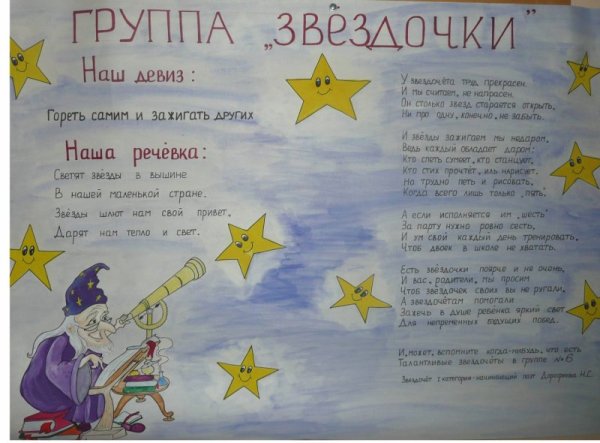 ГРУППА „ЗВЁЗДОЧКИ”
Наш девиз:
Гореть самим и зажигать других
Наша речёвка:
Светят звёзды в вышине
В нашей маленькой стране.
Звёзды шлют нам свой привет,
Дарят нам тепло и свет.
У звездочёта труд прекрасен.
И мы считаем, не напрасен.
Он столько звезд старается открыть,
Ни про одну, конечно, не забыть.
И звёзды зажигаем мы недаром,
Ведь каждый обладает даром:
Кто спеть сумеет, кто станцует,
Кто стих прочтёт, иль нарисует.
Но трудно петь и рисовать,
Когда всего лишь только „пять”.
А если исполняется им „шесть”
За парту нужно ровно сесть,
И ум свой каждый день тренировать,
Чтоб двоек в школе не хватать.
Есть звёздочки поярче и не очень,
И вас, родители, мы просим
Чтоб звёздочек своих вы не ругали,
А звездочётам помогали
Зажечь в душе ребёнка яркий свет
Для непременных будущих побед.
И, может, вспомните когда-нибудь, что есть
Талантливые звездочёты в группе №6
Звездочёт I категории - начинающий поэт Н.С.